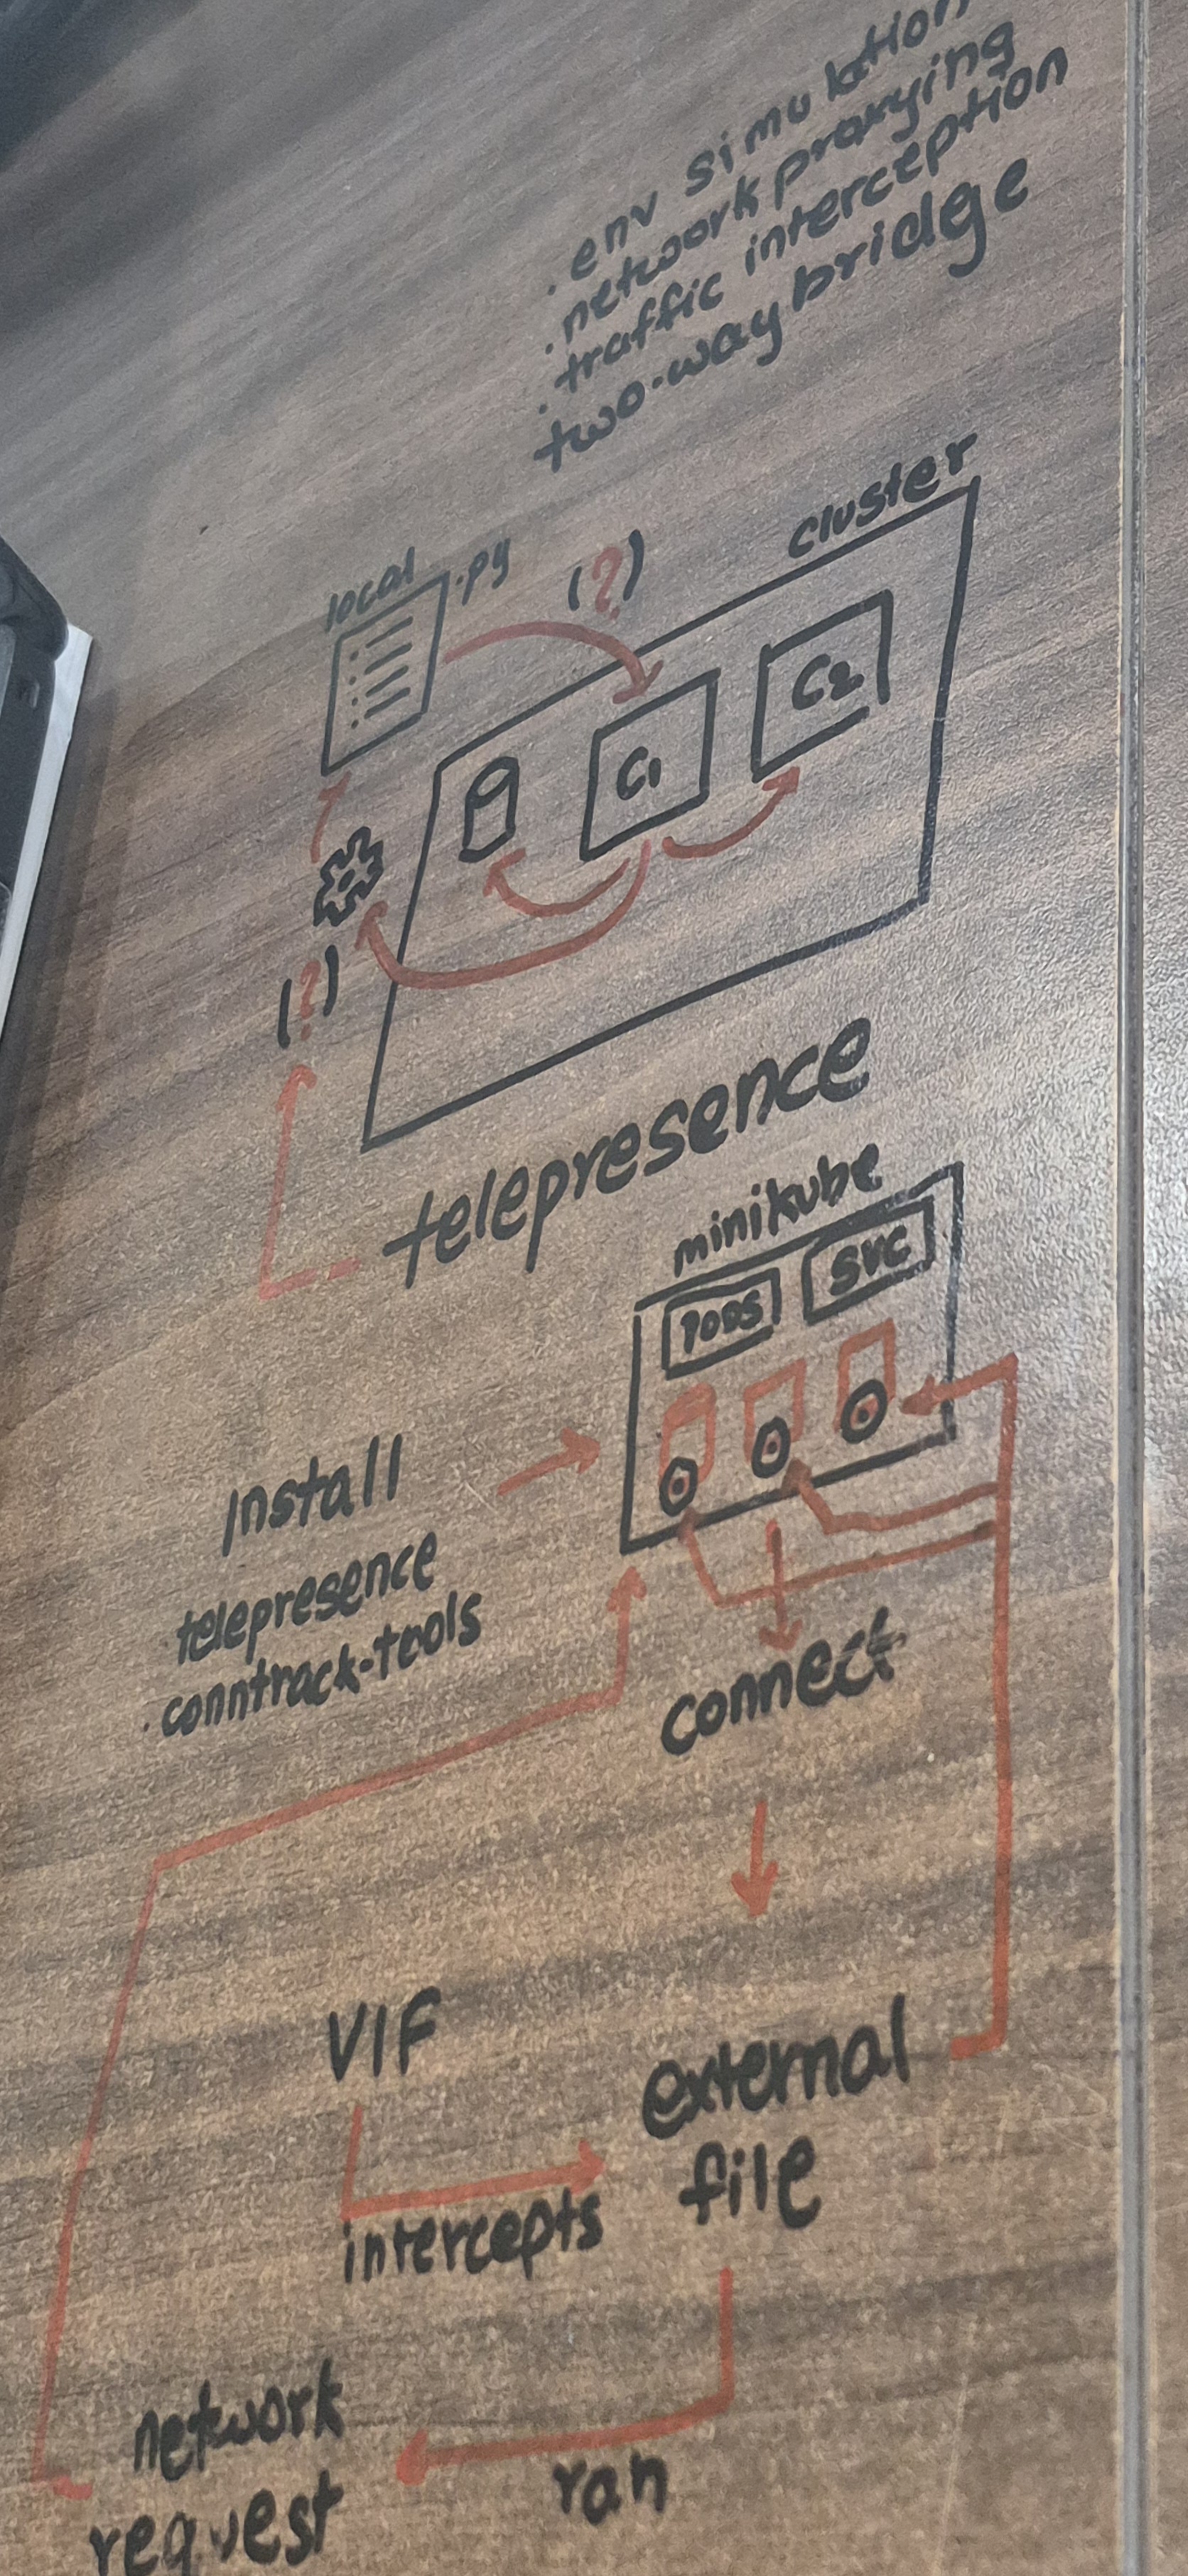 . env simulation
. network proxying
. traffic interception
two-way bridge
cluster
local .py
(?)
C1
C2
(?)
telepresence
minikube
PODS
SVC
install
. telepresence
. conntrack-tools
connect
VIF
external
file
intercepts
network
request
ran